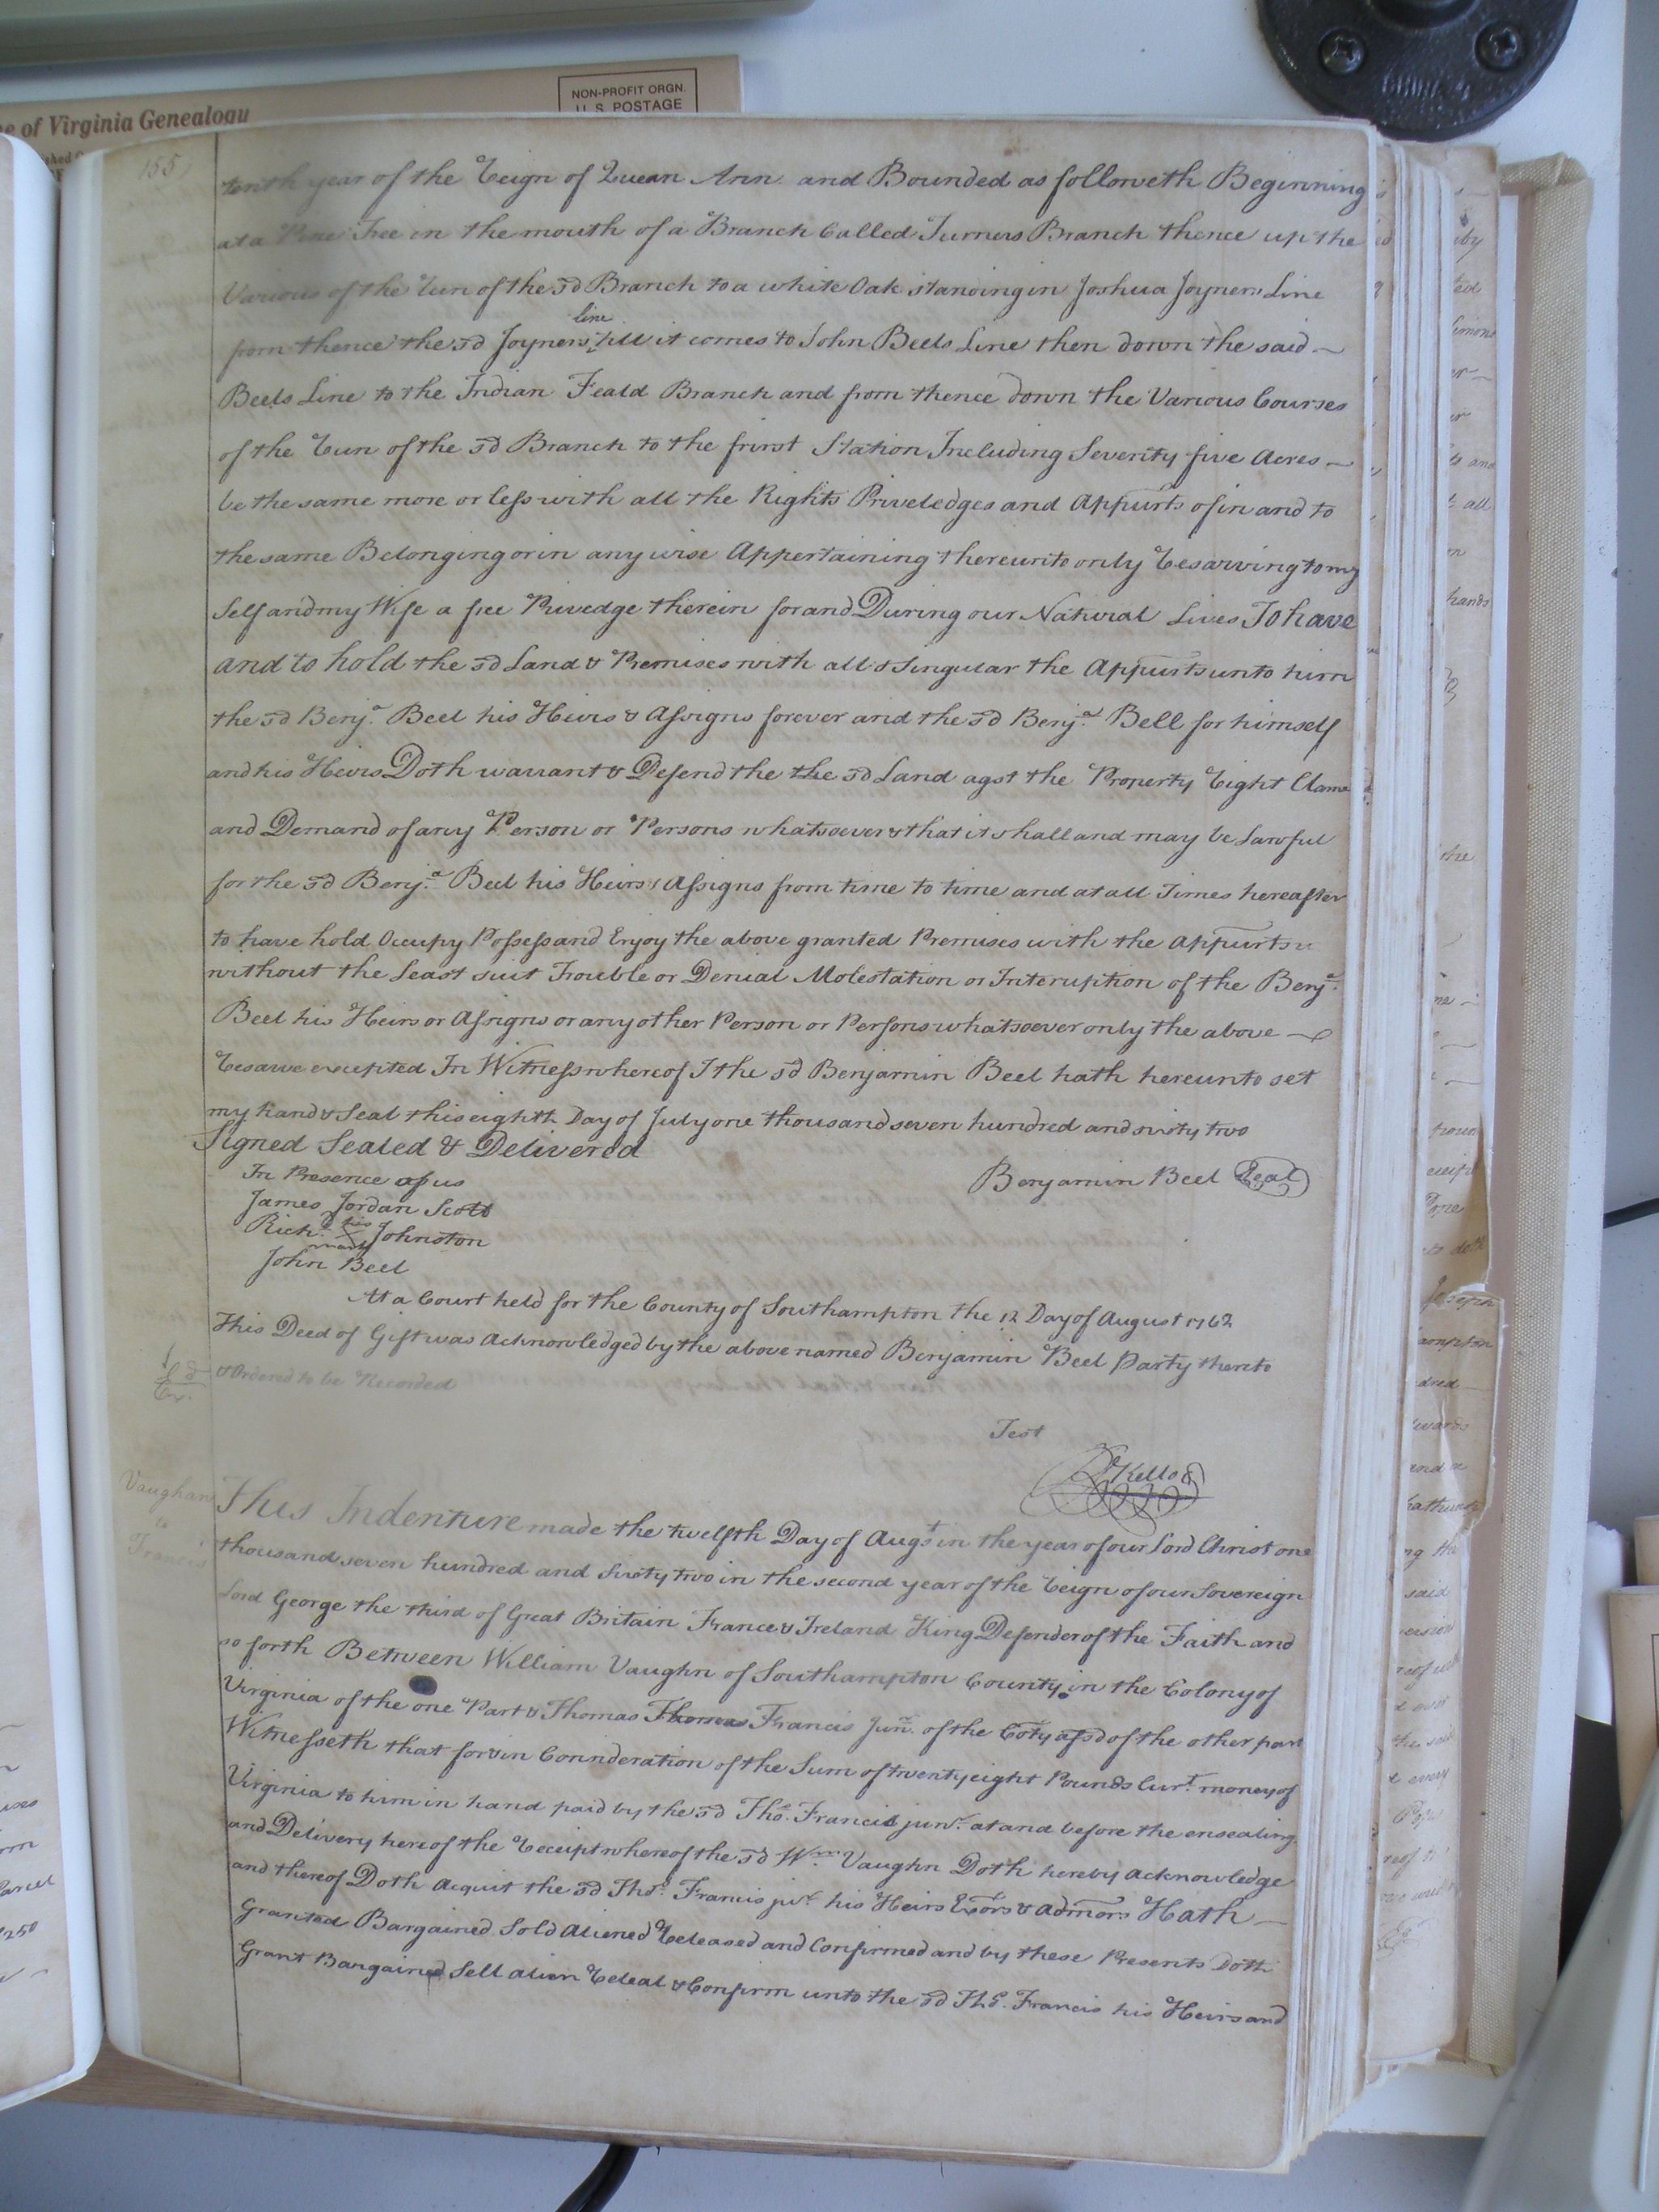 e of Virginia Genealogy
NON-PROFIT ORGN.
U. S. POSTAGE
155
tenth year of the Reign of Queen Ann and Bounded as followeth Beginning
at a Pine Tree in the mouth of a Branch Called Turners Branch thence up the
Various of the Run of the sd Branch to a white Oak standing in Joshua Joyners Line
from thence the sd Joyners line till it comes to John Beels Line then down the said
Beels Line to the Indian Feald Branch and from thence down the Various Courses
of the Run of the sd Branch to the frirst Station Including Seventy five Acres
be the same more or less with all the Rights Priveledges and Appurts of in and to
the same Belonging or in any wise Appertaining thereunto only Resarving to my
Self and my Wife a free Privedge therein for and During our Natural Lives To have
and to hold the sd Land & Premises with all & Singular the Appurts unto him
the sd Benja. Beel his Heirs & Assigns forever and the sd Benja. Bell for himself
and his Heirs Doth warrant & Defend the the sd Land agst the Property Right Clame
and Demand of any Person or Persons whatsoever & that it shall and may be Lawful
for the sd Benja. Beel his Heirs & Assigns from time to time and at all Times hereafter
to have hold Occupy Possess and Enjoy the above granted Premises with the appurts
without the Least suit Trouble or Denial Molestation or Interuption of the Benja.
Beel his Heirs or Assigns or any other Person or Persons whatsoever only the above
Resarve excepted In Witness whereof I the sd Benjamin Beel hath hereunto set
my hand & Seal this eighth Day of July one thousand seven hundred and sixty two
Signed Sealed & Delivered
In Presence of us
Benjamin Beel Seal
James Jordan Scott
Richd. his Johnston
mark
John Beel
At a Court held for the County of Southampton the 12 Day of August 1762
This Deed of Gift was Acknowledged by the above named Benjamin Beel Party thereto
& Ordered to be Recorded
Ex.
Test
Kello
Vaughan
to
Francis
This Indenture made the twelfth Day of Augt in the year of our Lord Christ one
thousand seven hundred and sixty two in the second year of the Reign of our Sovereign
Lord George the third of Great Britain France & Ireland King Defender of the Faith and
so forth Between William Vaughn of Southampton County in the Colony of
Virginia of the one Part & Thomas Thomas Francis Junr. of the Coty afsd of the other part
Witnesseth that for & in Connderation of the Sum of twenty eight Pounds Curt. money of
Virginia to him in hand paid by the sd Thos. Francis junr. at and before the ensealing
and Delivery hereof the Receipt whereof the sd Wm. Vaughn Doth hereby acknowledge
and thereof Doth Acquit the sd Thos. Francis jur. his Heirs Exors & admors Hath
Granted Bargained Sold Aliened Released and Confirmed and by these Presents Doth
Grant Bargained Sell alien Releas & Confirm unto the sd Thos. Francis his Heirs and